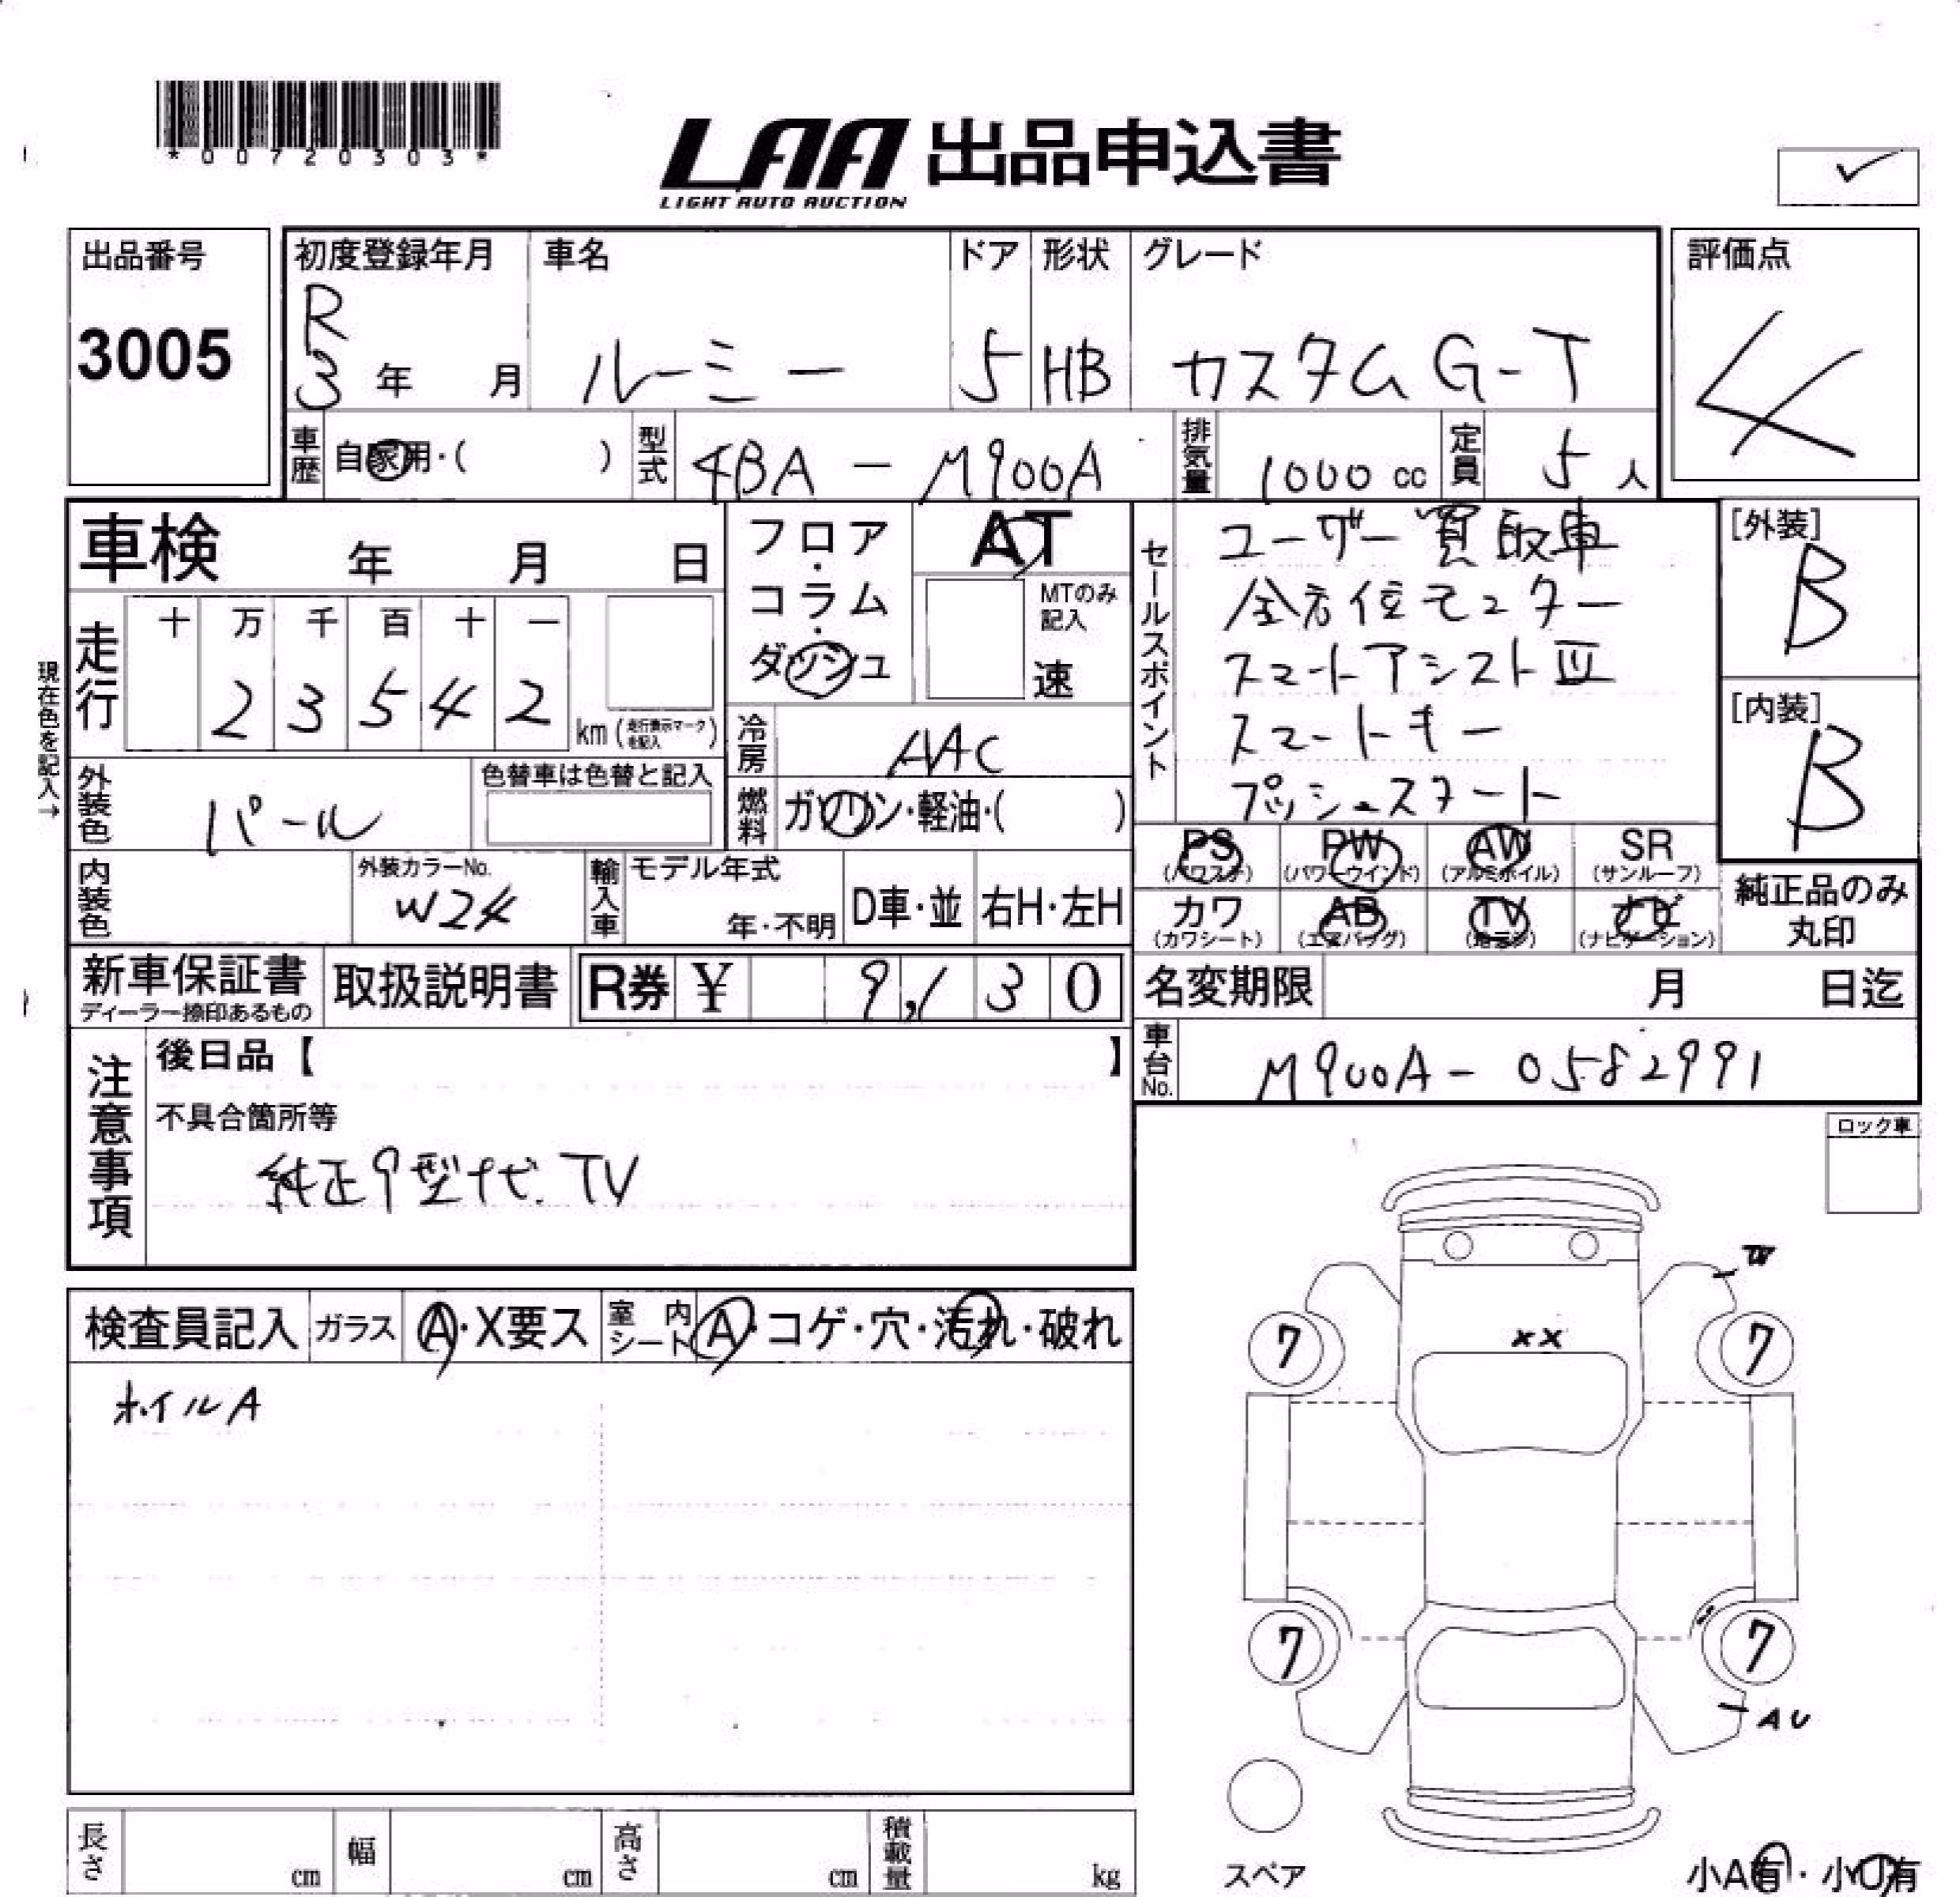 *00720303*
LAA 出品申込書
LIGHT AUTO AUCTION
出品番号
3005
初度登録年月 車名 ドア 形状 グレード
R
3年 月 ルーミー 5 HB カスタムG-T
評価点
4
車歴 自家用・( ) 型式 4BA-M900A 排気量 1000cc 定員 5人
車検 年 月 日
フロア・コラム・ダッシュ
AT
MTのみ記入
速
走行
十 万 千 百 十 一
2 3 5 4 2 km(走行表示マークを記入)
現在色を記入→
冷房 AAC
燃料 ガソリン・軽油・( )
外装色 パール
色替車は色替と記入
内装色
外装カラーNo.
W24
輸入車 モデル年式
年・不明 D車・並 右H・左H
セールスポイント
ユーザー買取車
全方位モニター
スマートアシストIII
スマートキー
プッシュスタート
[外装]
B
[内装]
B
PS (パワステ) PW (パワーウインド) AW (アルミホイル) SR (サンルーフ)
カワ (カワシート) AB (エアバッグ) TV ナビ (ナビゲーション)
純正品のみ丸印
新車保証書
ディーラー捺印あるもの
取扱説明書
R券 ¥ 9,130
名変期限 月 日迄
車台No. M900A-0582991
注意事項
後日品【 】
不具合箇所等
純正9型ナビ.TV
検査員記入 ガラス A・X要ス 室内シート A・コゲ・穴・汚れ・破れ
ホイルA
ロック車
xx
7 7
7 7
AU
スペア
小A有・小U有
長さ cm 幅 cm 高さ cm 積載量 kg